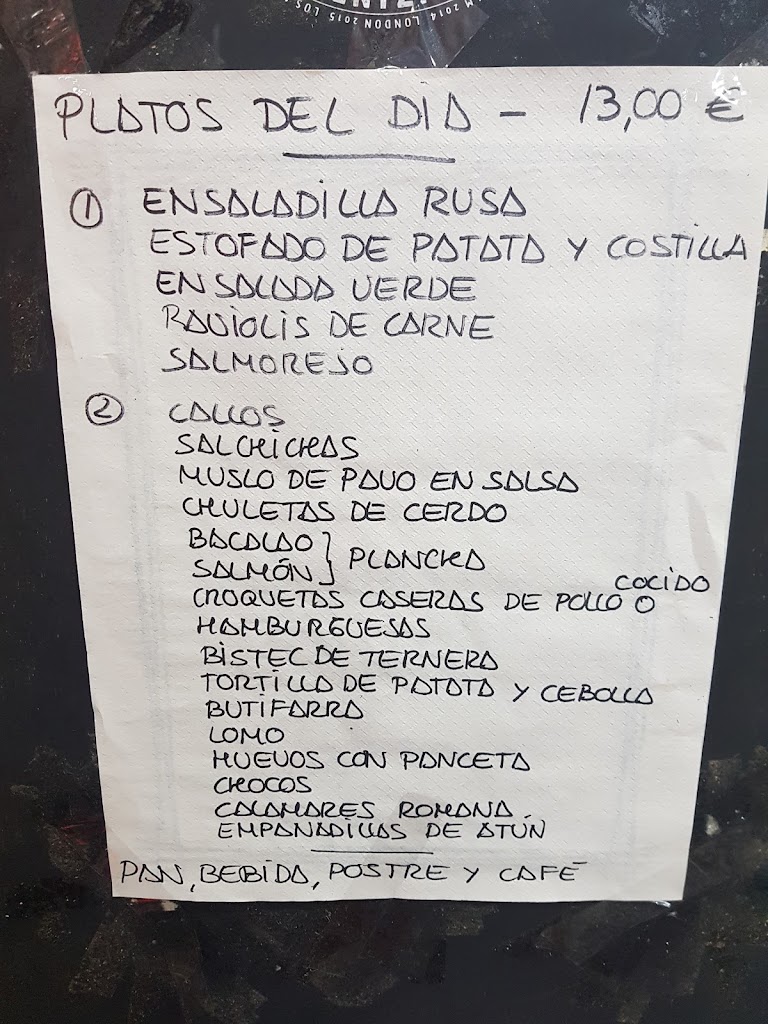 M 2014 LONDON 2015 LOS
PLATOS DEL DIA - 13,00 €
① ENSALADILLA RUSA
ESTOFADO DE PATATA Y COSTILLA
ENSALADA VERDE
RAVIOLIS DE CARNE
SALMOREJO
② CALLOS
SALCHICHAS
MUSLO DE PAVO EN SALSA
CHULETAS DE CERDO
BACALAO } PLANCHA
SALMÓN
CROQUETAS CASERAS DE POLLO O COCIDO
HAMBURGUESAS
BISTEC DE TERNERA
TORTILLA DE PATATA Y CEBOLLA
BUTIFARRA
LOMO
HUEVOS CON PANCETA
CHOCOS
CALAMARES ROMANA
EMPANADILLAS DE ATÚN
PAN, BEBIDA, POSTRE Y CAFÉ